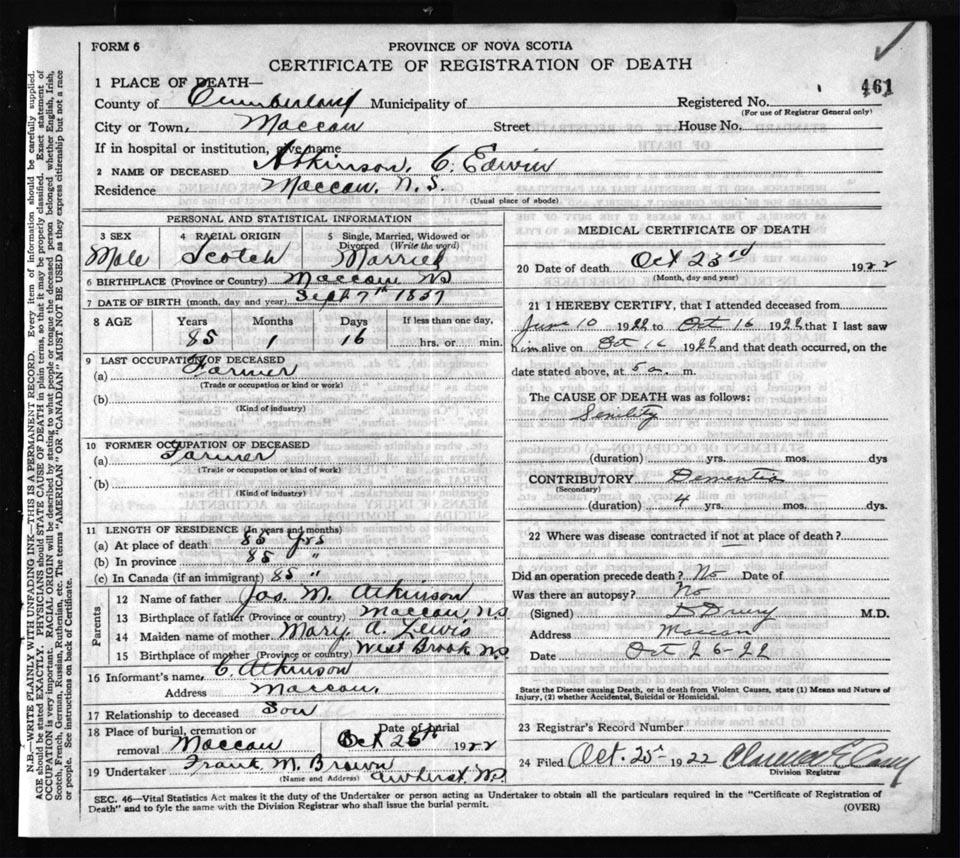 FORM 6
PROVINCE OF NOVA SCOTIA
CERTIFICATE OF REGISTRATION OF DEATH
461
1 PLACE OF DEATH—
County of Cumberland Municipality of Registered No.
(For use of Registrar General only)
City or Town, Maccan Street House No.
If in hospital or institution, give name
2 NAME OF DECEASED Atkinson, C. Edwin
Residence Maccan, N.S.
(Usual place of abode)
PERSONAL AND STATISTICAL INFORMATION
3 SEX 4 RACIAL ORIGIN 5 Single, Married, Widowed or Divorced (Write the word)
Male Scotch Married
6 BIRTHPLACE (Province or Country) Maccan NS
7 DATE OF BIRTH (month, day and year) Sept 7th 1837
8 AGE Years Months Days If less than one day,
85 1 16 hrs. or min.
9 LAST OCCUPATION OF DECEASED
(a) Farmer
(Trade or occupation or kind or work)
(b)
(Kind of industry)
10 FORMER OCCUPATION OF DECEASED
(a) Farmer
(Trade or occupation or kind of work)
(b)
(Kind of industry)
11 LENGTH OF RESIDENCE (In years and months)
(a) At place of death 85 Yrs
(b) In province 85 "
(c) In Canada (if an immigrant) 85 "
Parents
12 Name of father Jas. M. Atkinson
13 Birthplace of father (Province or country) Maccan NS
14 Maiden name of mother Mary A. Lewis
15 Birthplace of mother (Province or country) West Brook NS
16 Informant's name, C. Atkinson
Address Maccan,
17 Relationship to deceased Son
18 Place of burial, cremation or Date of burial
removal Maccan Oct 25th 1922
19 Undertaker Frank M. Brown
(Name and Address) Amherst NS
MEDICAL CERTIFICATE OF DEATH
20 Date of death Oct 23rd 1922
(Month, day and year)
21 I HEREBY CERTIFY, that I attended deceased from
June 10 1922 to Oct 16 1922 that I last saw
him alive on Oct 16 1922 and that death occurred, on the
date stated above, at 5 a. m.
The CAUSE OF DEATH was as follows:
Senility
(duration) yrs. mos. dys
CONTRIBUTORY Dementia
(Secondary)
(duration) 4 yrs. mos. dys.
22 Where was disease contracted if not at place of death?
Did an operation precede death? No Date of
Was there an autopsy? No
(Signed) D Drury M.D.
Address Maccan
Date Oct 26-22
State the Disease causing Death, or in death from Violent Causes, state (1) Means and Nature of
Injury, (2) whether Accidental, Suicidal or Homicidal.
23 Registrar's Record Number
24 Filed Oct. 25 1922 Clarence E Casey
Division Registrar
SEC. 46—Vital Statistics Act makes it the duty of the Undertaker or person acting as Undertaker to obtain all the particulars required in the "Certificate of Registration of
Death" and to fyle the same with the Division Registrar who shall issue the burial permit.
(OVER)
N.B.—WRITE PLAINLY WITH UNFADING INK—THIS IS A PERMANENT RECORD. Every item of information should be carefully supplied.
AGE should be stated EXACTLY. PHYSICIANS should STATE CAUSE OF DEATH in plain terms, so that it may be properly classified. Exact statement of
OCCUPATION is very important. RACIAL ORIGIN will be described by stating to what people or tongue the deceased person belonged whether English, Irish,
Scotch, French, German, Russian, Ruthenian, etc. The terms "AMERICAN" OR "CANADIAN" MUST NOT BE USED as they express citizenship but not a race
or people. See instructions on back of Certificate.